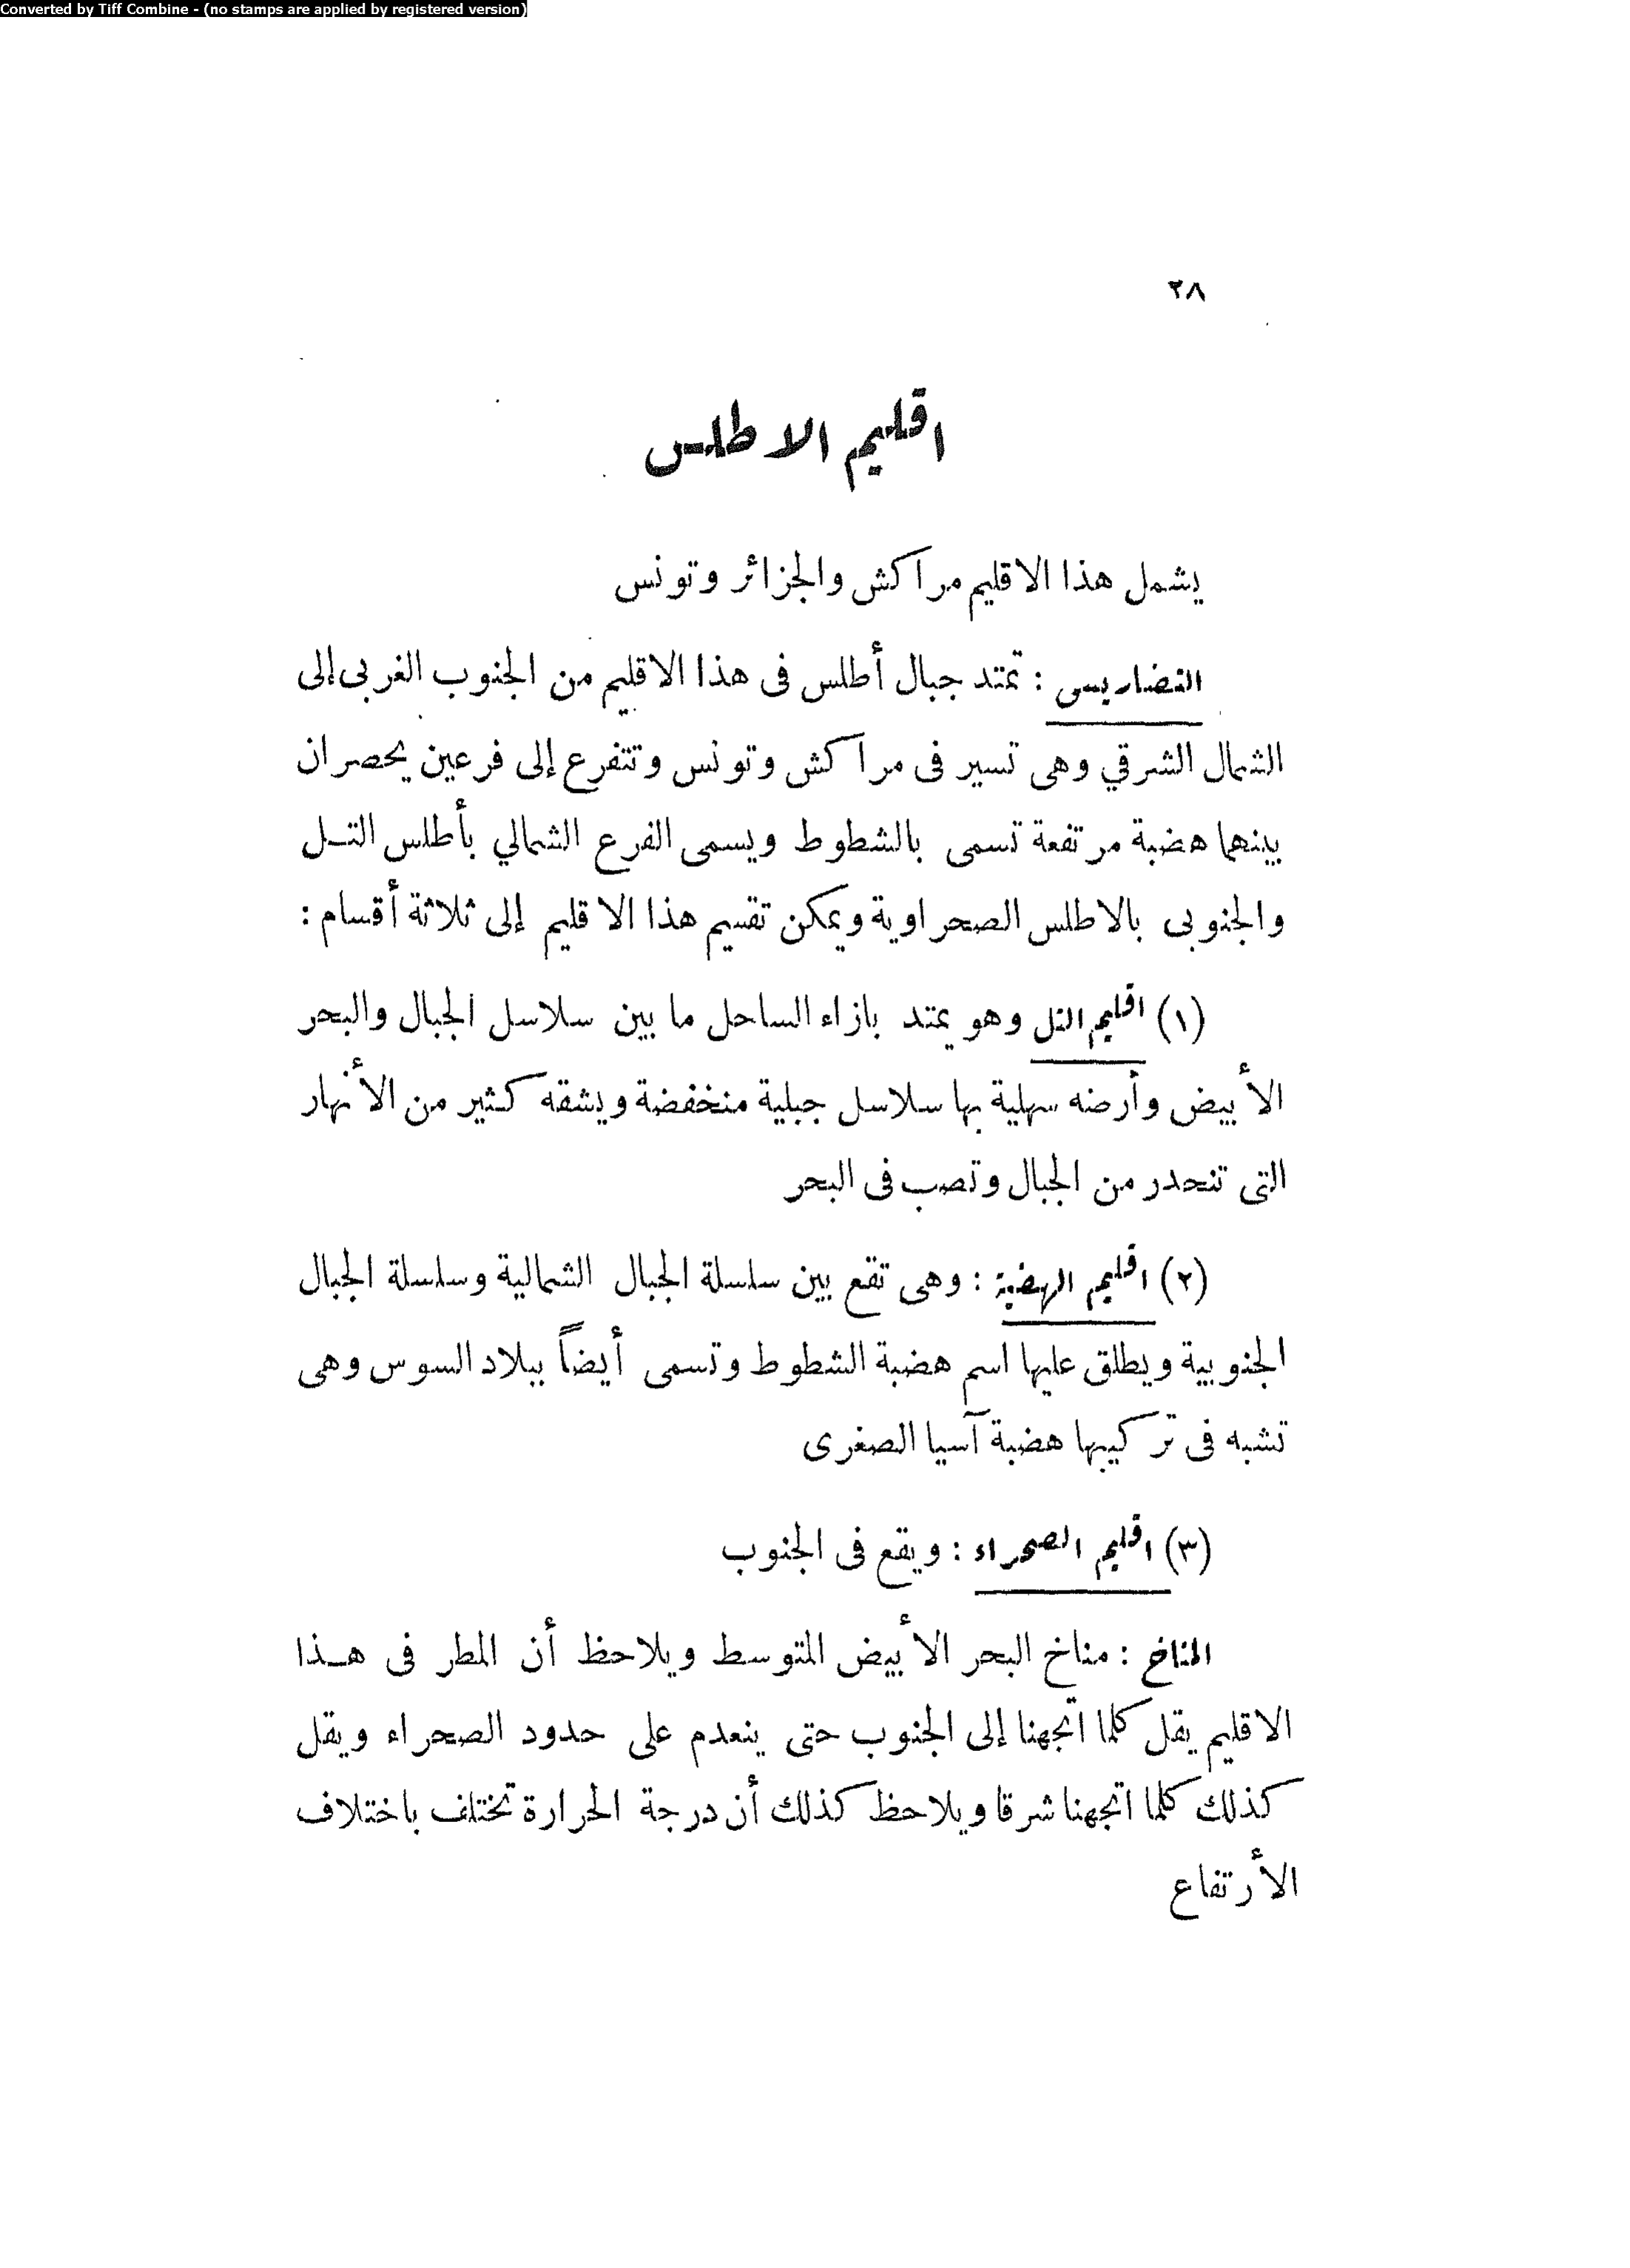 Converted by Tiff Combine - (no stamps are applied by registered version)
٢٨
اقليم الاطلس
يشمل هذا الاقليم مراكش والجزائر وتونس
التضاريس : تمتد جبال أطلس فى هذا الاقليم من الجنوب الغربى إلى
الشمال الشرقي وهى تسير فى مراكش وتونس وتتفرع إلى فرعين يحصران
بينهما هضبة مرتفعة تسمى بالشطوط ويسمى الفرع الشمالي بأطلس التـل
والجنوبى بالاطلس الصحراوية ويمكن تقسيم هذا الاقليم إلى ثلاثة أقسام :
(١) اقليم التل وهو يمتد بازاء الساحل ما بين سلاسل الجبال والبحر
الأبيض وأرضه سهلية بها سلاسل جبلية منخفضة ويشقه كثير من الأنهار
التى تنحدر من الجبال وتصب فى البحر
(٢) اقليم الهضبة : وهى تقع بين سلسلة الجبال الشمالية وسلسلة الجبال
الجنوبية ويطلق عليها اسم هضبة الشطوط وتسمى أيضاً ببلاد السوس وهى
تشبه فى تركيبها هضبة آسيا الصغرى
(٣) اقليم الصحراء : ويقع فى الجنوب
المناخ : مناخ البحر الأبيض المتوسط ويلاحظ أن المطر فى هـذا
الاقليم يقل كلما اتجهنا إلى الجنوب حتى ينعدم على حدود الصحراء ويقل
كذلك كلما اتجهنا شرقا ويلاحظ كذلك أن درجة الحرارة تختلف باختلاف
الأرتفاع